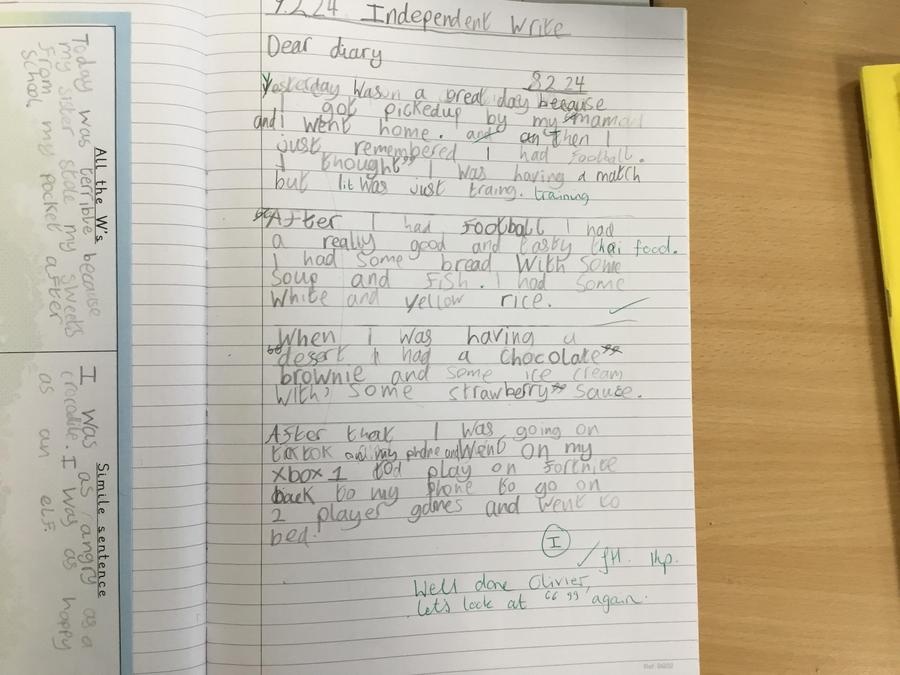 9.2.24 Independent Write
Dear diary
8.2.24
Yesterday was a great day because
I got pickedup by my mama
and i went home. and then I
just remembered I had football.
I thought" I was having a match
but it was just traing. training
After I had Football I had
a really good and tasty thai food.
I had some bread With some
Soup and Fish. I had some
White and yellow rice.
When I was having a
desert I had a chocolate
brownie and some ice cream
With, some strawberry sauce.
After that I was going on
tiktok on my phone and Went on my
xbox 1 to play on Fortnite
back to my phone to go on
2 player games and went to
bed.
I
Well done Olivier,
let's look at " " again.
All the W's
Today was terrible because
my sister stole my sweets
From my pocket after
School
Simile sentence
I was as angry as a
crocodile. I was as happy
as an elf.
Ref: